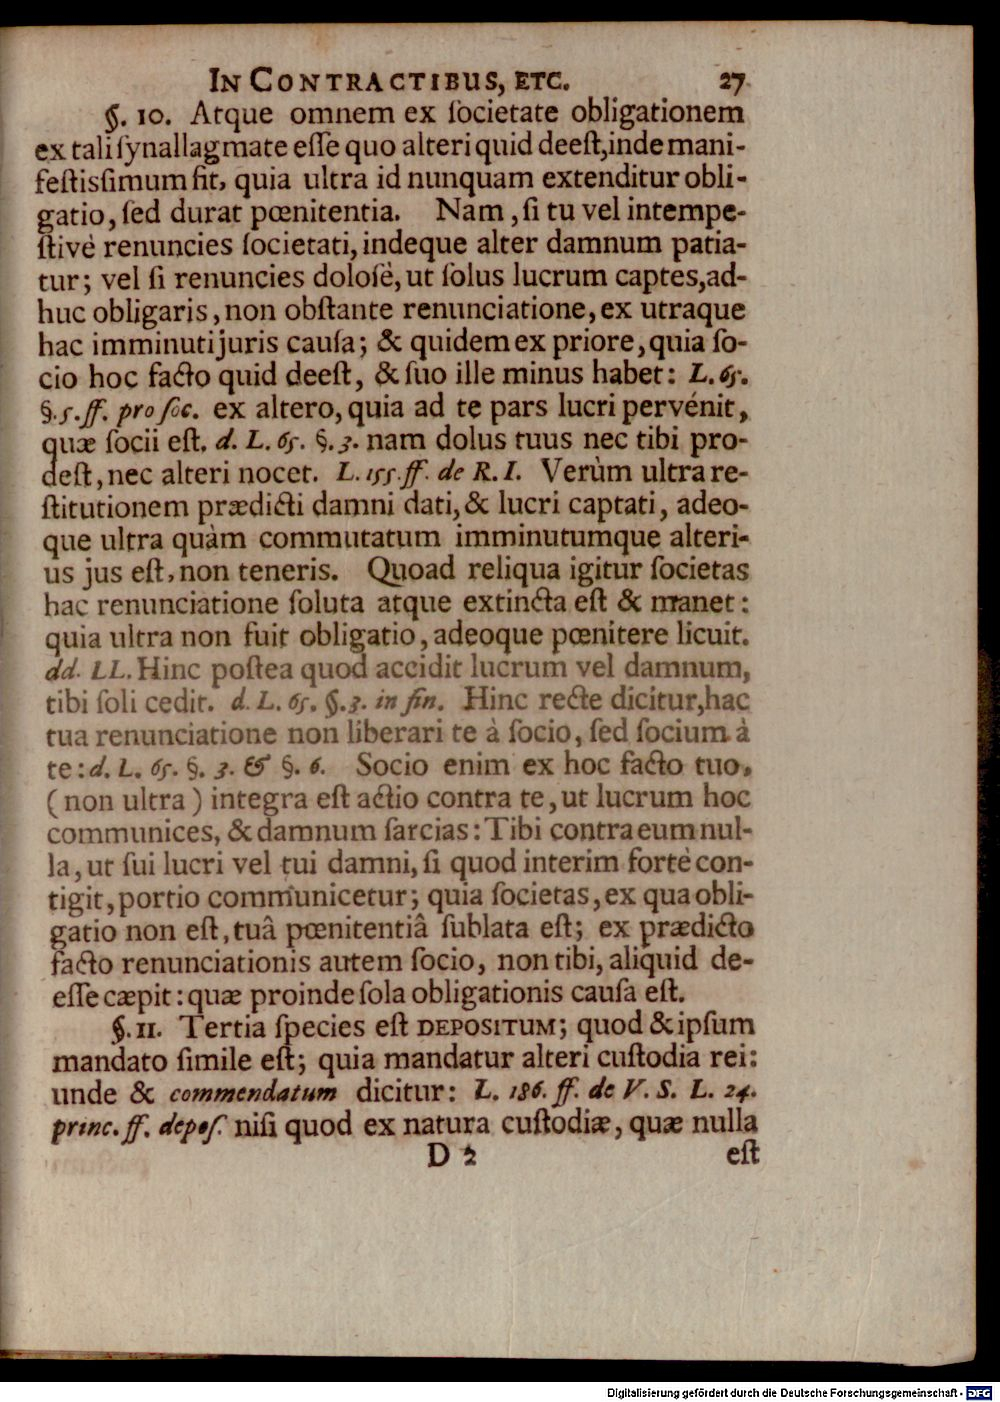 IN CONTRACTIBUS, ETC. 27
§. 10. Atque omnem ex ſocietate obligationem
ex tali ſynallagmate eſſe quo alteri quid deeſt, inde mani-
feſtisſimum ſit, quia ultra id nunquam extenditur obli-
gatio, ſed durat pœnitentia. Nam, ſi tu vel intempe-
ſtivè renuncies ſocietati, indeque alter damnum patia-
tur; vel ſi renuncies doloſè, ut ſolus lucrum captes, ad-
huc obligaris, non obſtante renunciatione, ex utraque
hac imminuti juris cauſa; & quidem ex priore, quia ſo-
cio hoc facto quid deeſt, & ſuo ille minus habet: L. 65.
§. 5. ff. pro ſoc. ex altero, quia ad te pars lucri pervénit,
quæ ſocii eſt. d. L. 65. §. 3. nam dolus tuus nec tibi pro-
deſt, nec alteri nocet. L. 155. ff. de R. I. Verùm ultra re-
ſtitutionem prædicti damni dati, & lucri captati, adeo-
que ultra quàm commutatum imminutumque alteri-
us jus eſt, non teneris. Quoad reliqua igitur ſocietas
hac renunciatione ſoluta atque extincta eſt & manet:
quia ultra non fuit obligatio, adeoque pœnitere licuit.
dd. LL. Hinc poſtea quod accidit lucrum vel damnum,
tibi ſoli cedit. d. L. 65. §. 3. in fin. Hinc recte dicitur, hac
tua renunciatione non liberari te à ſocio, ſed ſocium à
te: d. L. 65. §. 3. & §. 6. Socio enim ex hoc facto tuo,
(non ultra) integra eſt actio contra te, ut lucrum hoc
communices, & damnum ſarcias: Tibi contra eum nul-
la, ut ſui lucri vel tui damni, ſi quod interim fortè con-
tigit, portio communicetur; quia ſocietas, ex qua obli-
gatio non eſt, tuâ pœnitentiâ ſublata eſt; ex prædicto
facto renunciationis autem ſocio, non tibi, aliquid de-
eſſe cæpit: quæ proinde ſola obligationis cauſa eſt.
§. 11. Tertia ſpecies eſt DEPOSITUM; quod & ipſum
mandato ſimile eſt; quia mandatur alteri cuſtodia rei:
unde & commendatum dicitur: L. 186. ff. de V. S. L. 24.
princ. ff. depoſ. niſi quod ex natura cuſtodiæ, quæ nulla
D 2 eſt
Digitalisierung gefördert durch die Deutsche Forschungsgemeinschaft - DFG